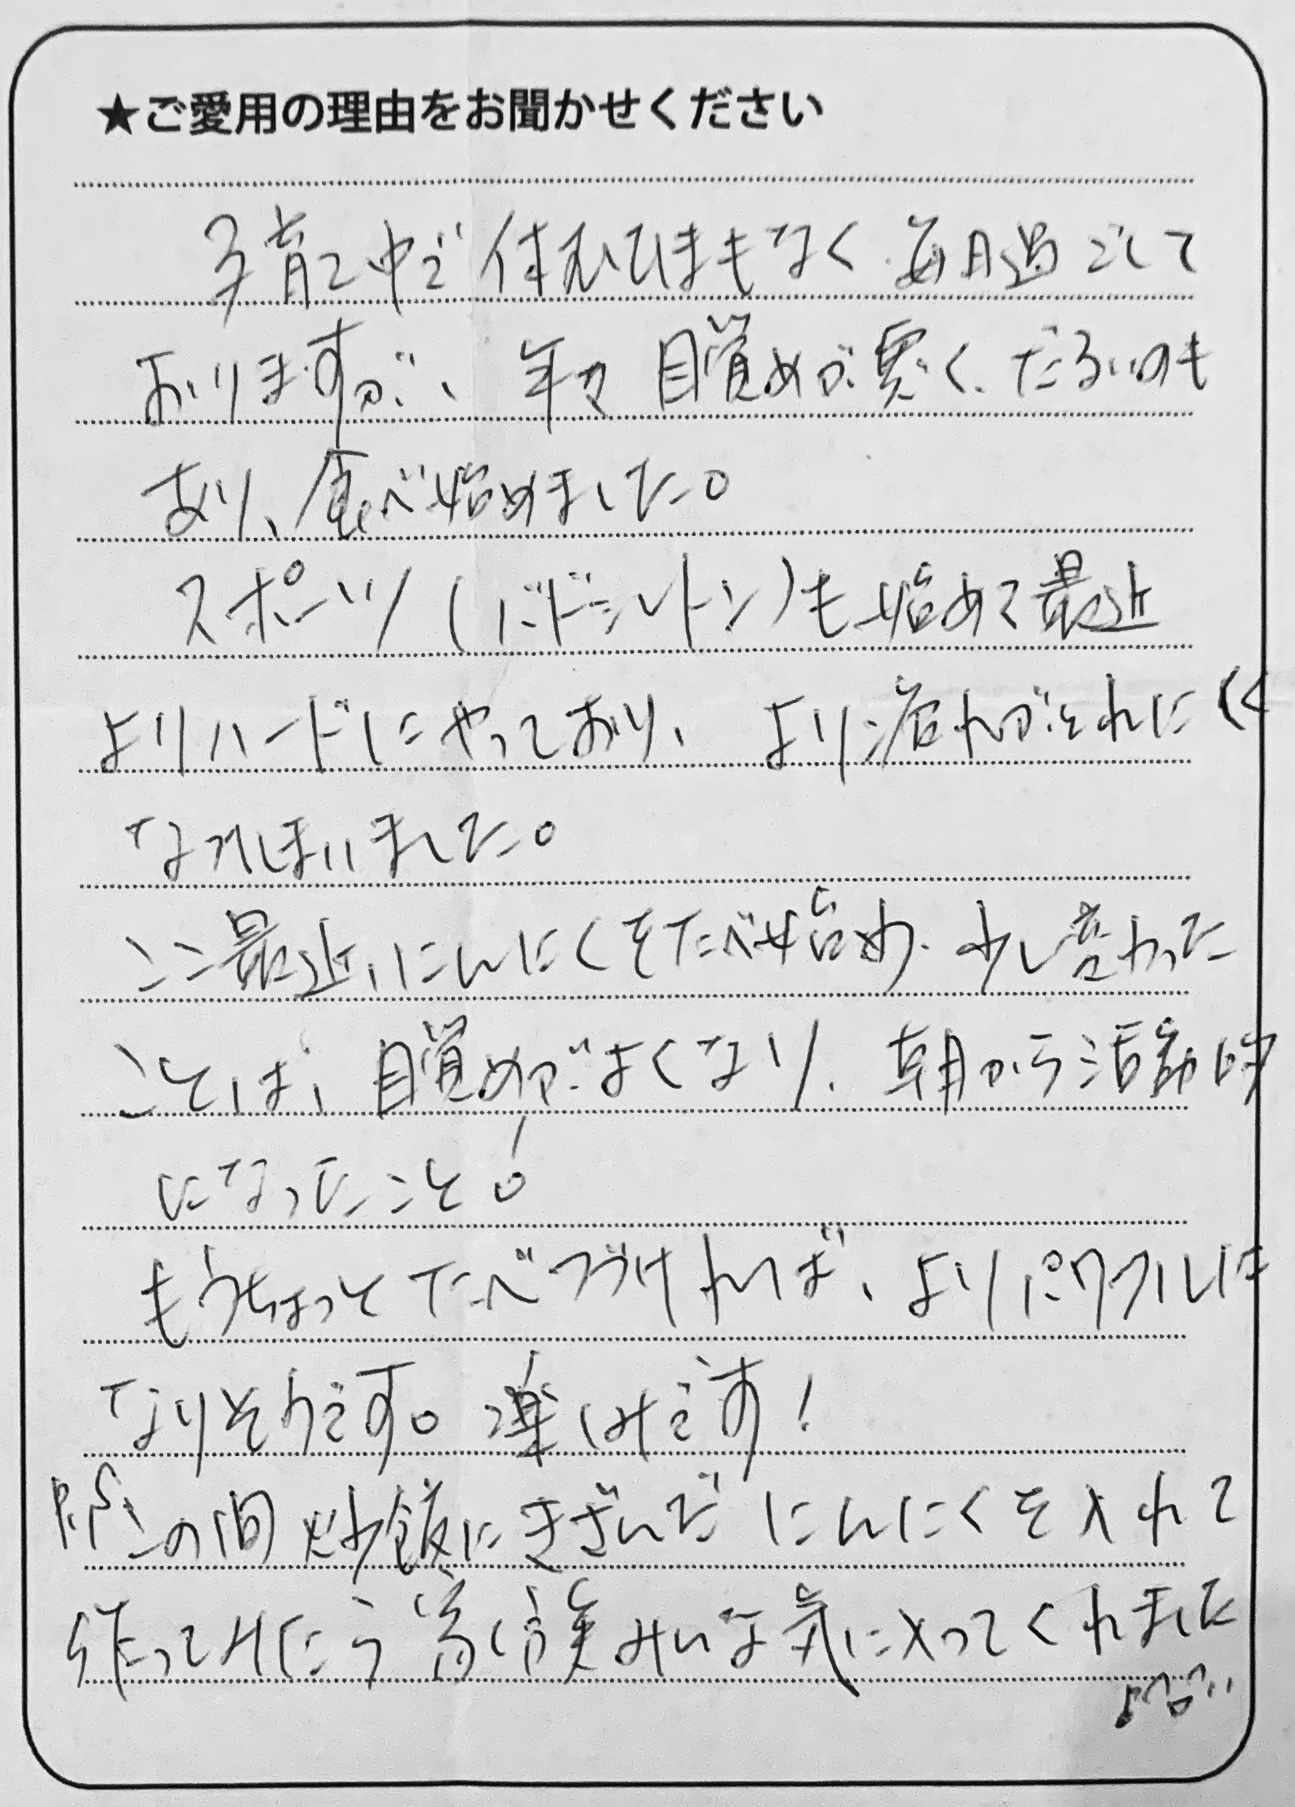 ★ご愛用の理由をお聞かせください
子育て中で休むひまもなく毎日過ごして
おりますが、年々目覚めが悪く、だるいのも
あり、食べ始めました。
スポーツ(バドミントン)も始めて最近
よりハードにやっており、より疲れがとれにくく
なってしまいました。
ここ最近、にんにくをたべ始め、少し変わった
ことは、目覚めがよくなり、朝から活動的
になったこと!
もうちょっとたべつづければ、よりパワフルに
なりそうです。楽しみです!
この間炒飯にきざんだにんにくを入れて
作ってみたら家族みいな気に入ってくれました